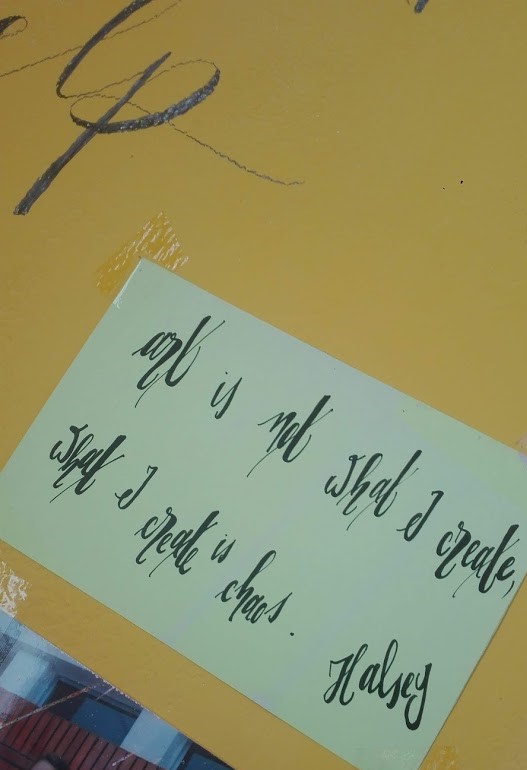 art is not what I create,
what I create is chaos.
Halsey